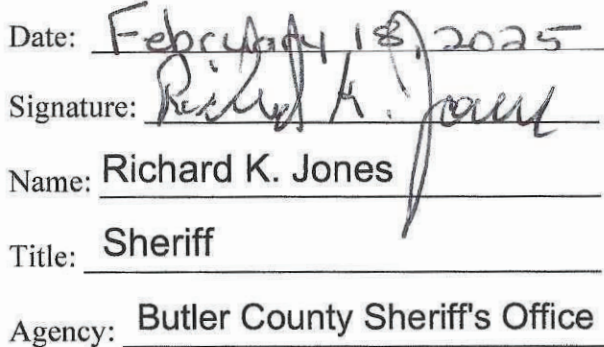 Date: February 18, 2025
Signature: Richard K. Jones
Name: Richard K. Jones
Title: Sheriff
Agency: Butler County Sheriff's Office